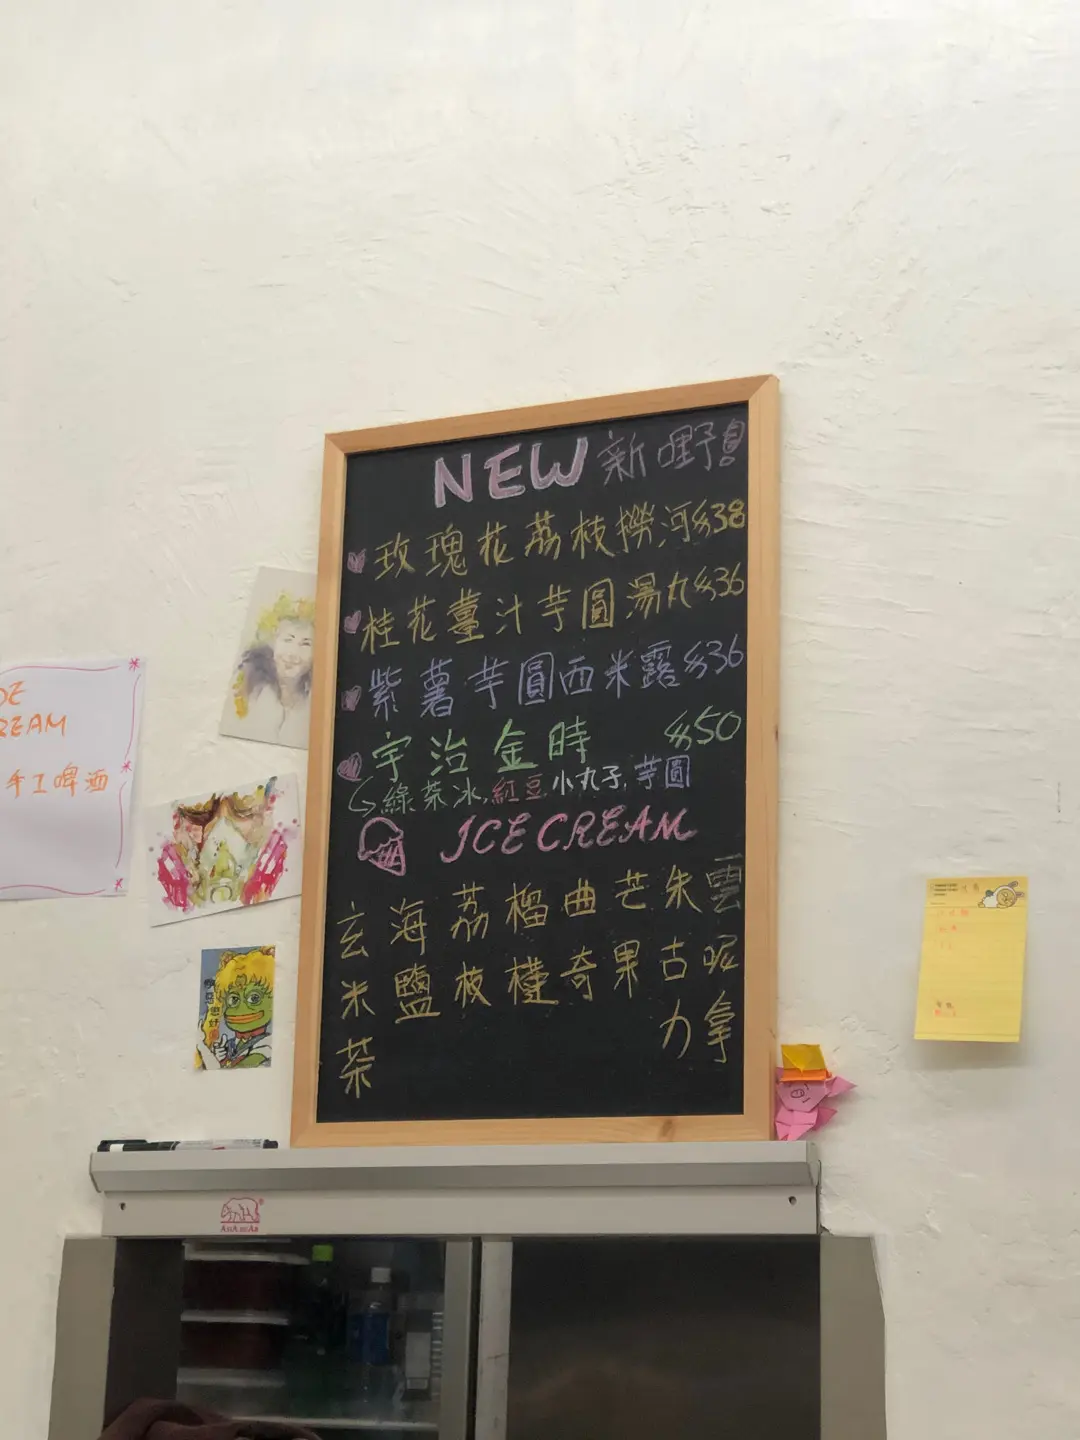 NEW 新嘢!
玫瑰花荔枝撈河$38
桂花薑汁芋圓湯丸$36
紫薯芋圓西米露$36
宇治金時 $50
綠茶冰,紅豆,小丸子,芋圓
ICE CREAM
玄米茶
海鹽
荔枝
榴槤
曲奇
芒果
朱古力
雲呢拿
REAM
手工啤酒
ASIA BEAR